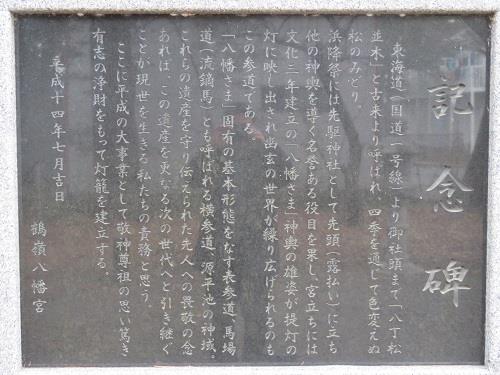 記念碑
東海道（国道一号線）より御社頭まで「八丁松
並木」と古来より呼ばれ、四季を通じて色変えぬ
松のみどり。
浜降祭には先駆神社として先頭（露払い）に立ち
他の神輿を導く名誉ある役目を果し、宮立ちには
文化三年建立の「八幡さま」神輿の雄姿が提灯の
灯に映し出され幽玄の世界が繰り広げられるのも
この参道である。
「八幡さま」固有の基本形態をなす表参道、馬場
道（流鏑馬）とも呼ばれる横参道、源平池の神域。
これらの遺産を守り伝えられた先人への畏敬の念
あれば、この遺産を更なる次の世代へと引き継ぐ
ことが現世を生きる私たちの責務と思う。
ここに平成の大事業として敬神尊祖の思い篤き
有志の浄財をもって灯籠を建立する。
平成十四年七月吉日
鶴嶺八幡宮